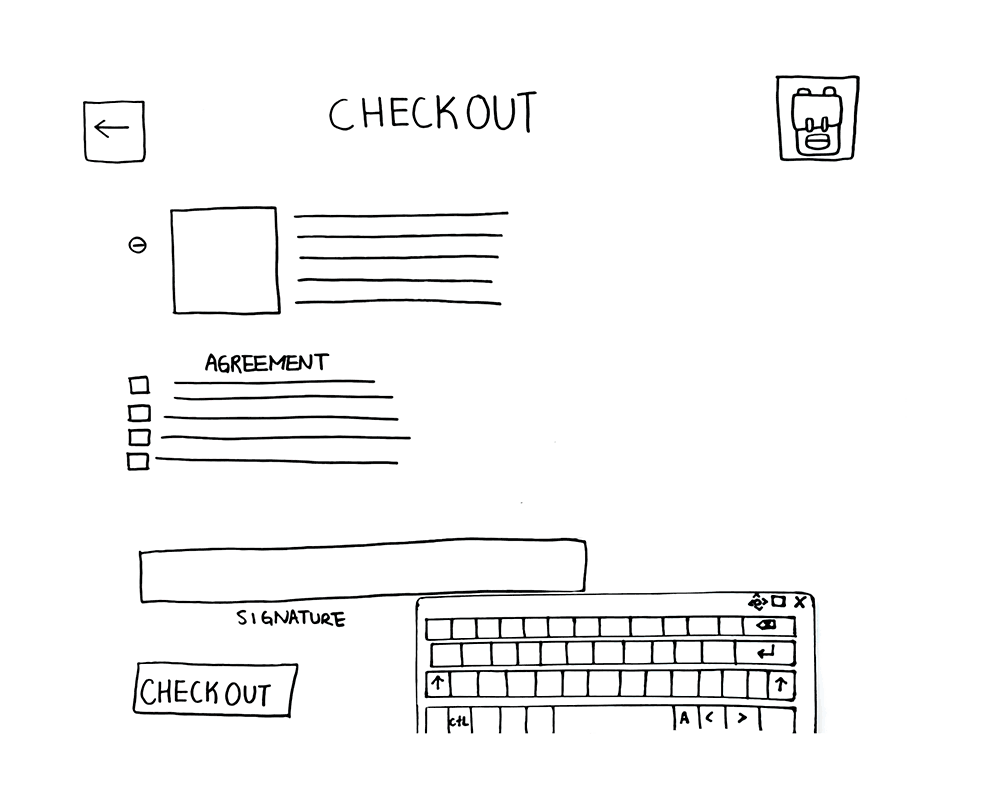 CHECKOUT
AGREEMENT
SIGNATURE
CHECKOUT
ctL
A < >